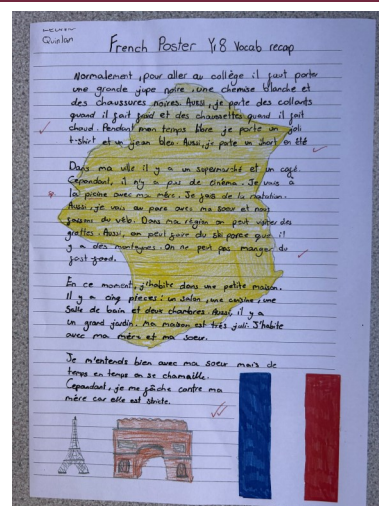 Quinlan
French Poster Yr8 Vocab recap
Normalement, pour aller au collège il faut porter
une grande jupe noire, une chemise blanche et
des chaussures noires. Aussi, je porte des collants
quand il fait froid et des chaussettes quand il fait
chaud. Pendant mon temps libre je porte un joli
t-shirt et un jean bleu. Aussi, je porte un short en été
Dans ma ville il y a un supermarché et un café.
Cependant, il n'y a pas de cinéma. Je vais à
la piscine avec ma mère. Je fais de la natation.
Aussi, je vais au parc avec ma soeur et nous
faisons du vélo. Dans ma région on peut visiter des
grottes. Aussi, on peut faire du ski parce que il
y a des montagnes. On ne peut pas manger du
fast-food.
En ce moment, j'habite dans une petite maison.
Il y a cinq pièces: un salon, une cuisine, une
salle de bain et deux chambres. Aussi, il y a
un grand jardin. Ma maison est très joli. J'habite
avec ma mère et ma soeur.
Je m'entends bien avec ma soeur mais de
temps en temps on se chamaille.
Cependant, je me fâche contre ma
mère car elle est stricte.